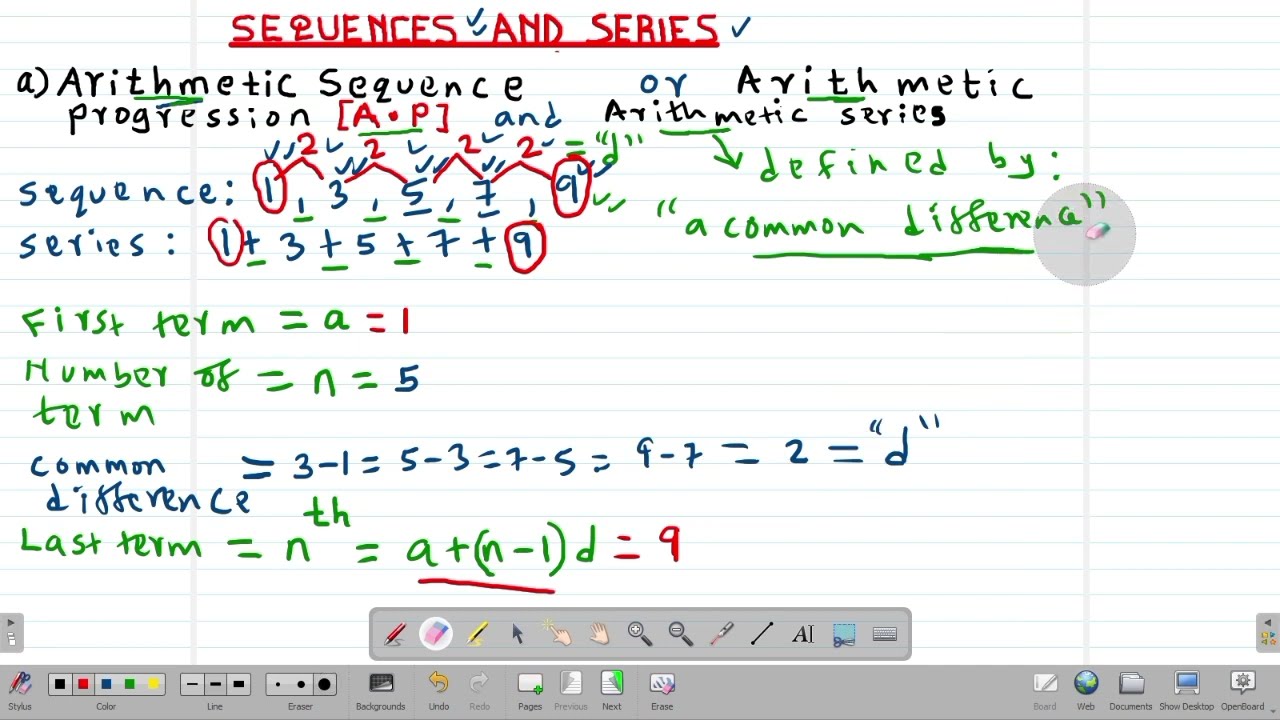 SEQUENCES AND SERIES
a) Arithmetic Sequence or Arithmetic
progression [A.P] and Arithmetic series
2 2 2 2 = "d"
defined by:
sequence: 1, 3, 5, 7, 9
"a common difference"
series: 1 + 3 + 5 + 7 + 9
First term = a = 1
Number of = n = 5
term
common = 3-1 = 5-3 = 7-5 = 9-7 = 2 = "d"
difference
Last term = nth = a+(n-1)d = 9
AI
Stylus Color Line Eraser Backgrounds Undo Redo Pages Previous Next Erase Board Web Documents Show Desktop OpenBoard